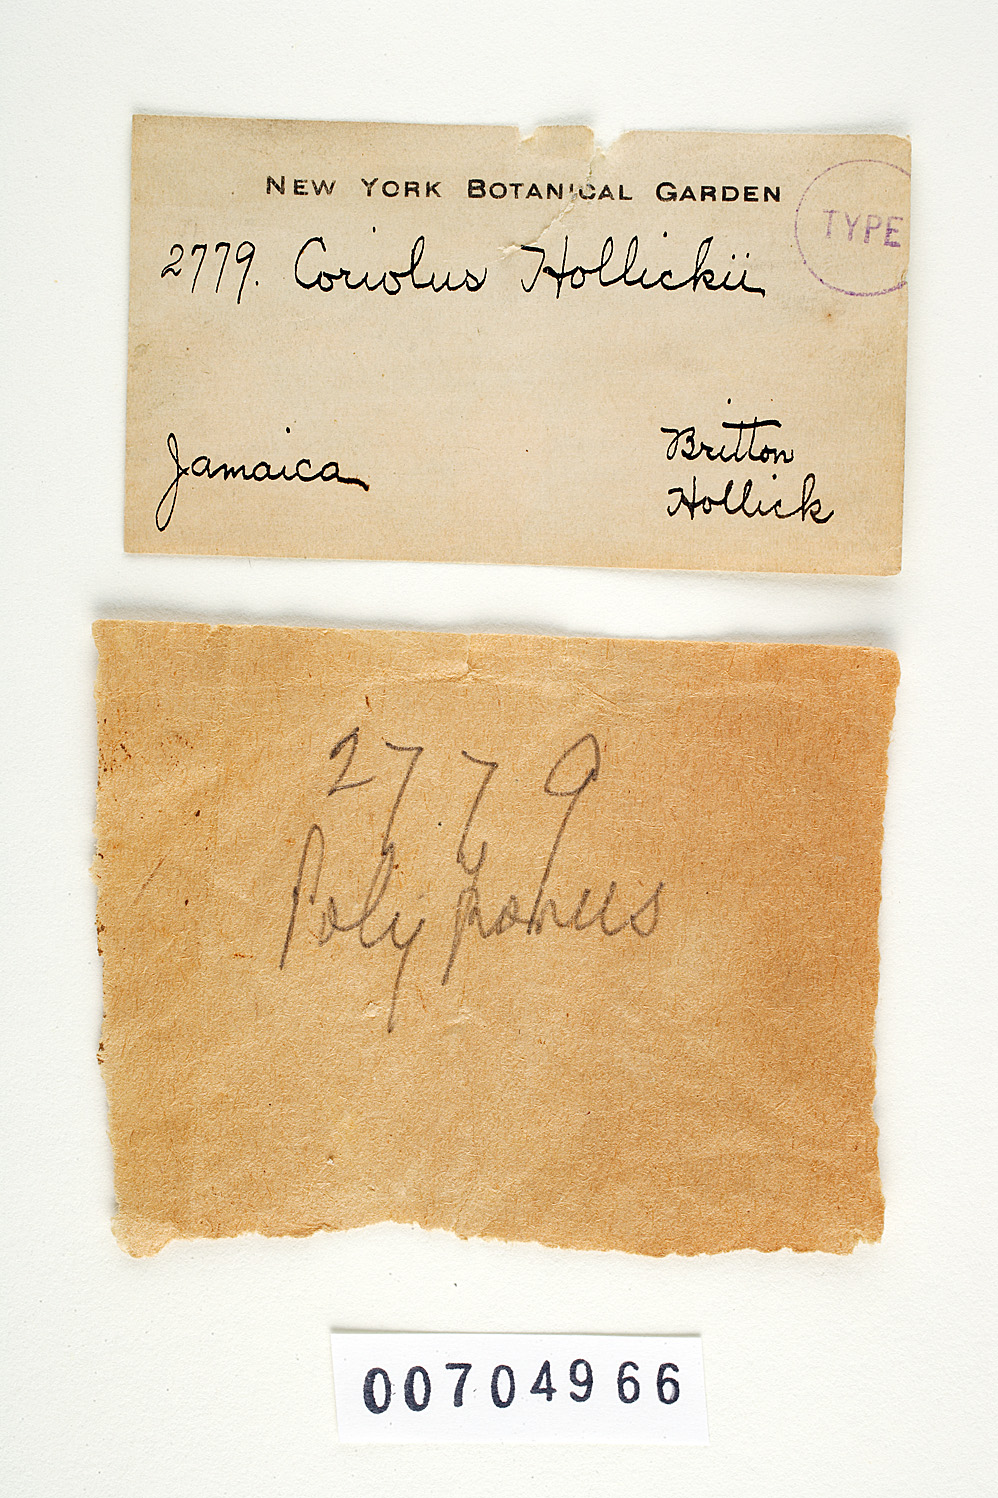 NEW YORK BOTANICAL GARDEN
TYPE
2779. Coriolus Hollickii
Jamaica
Britton
Hollick
2779
Polyporus
00704966